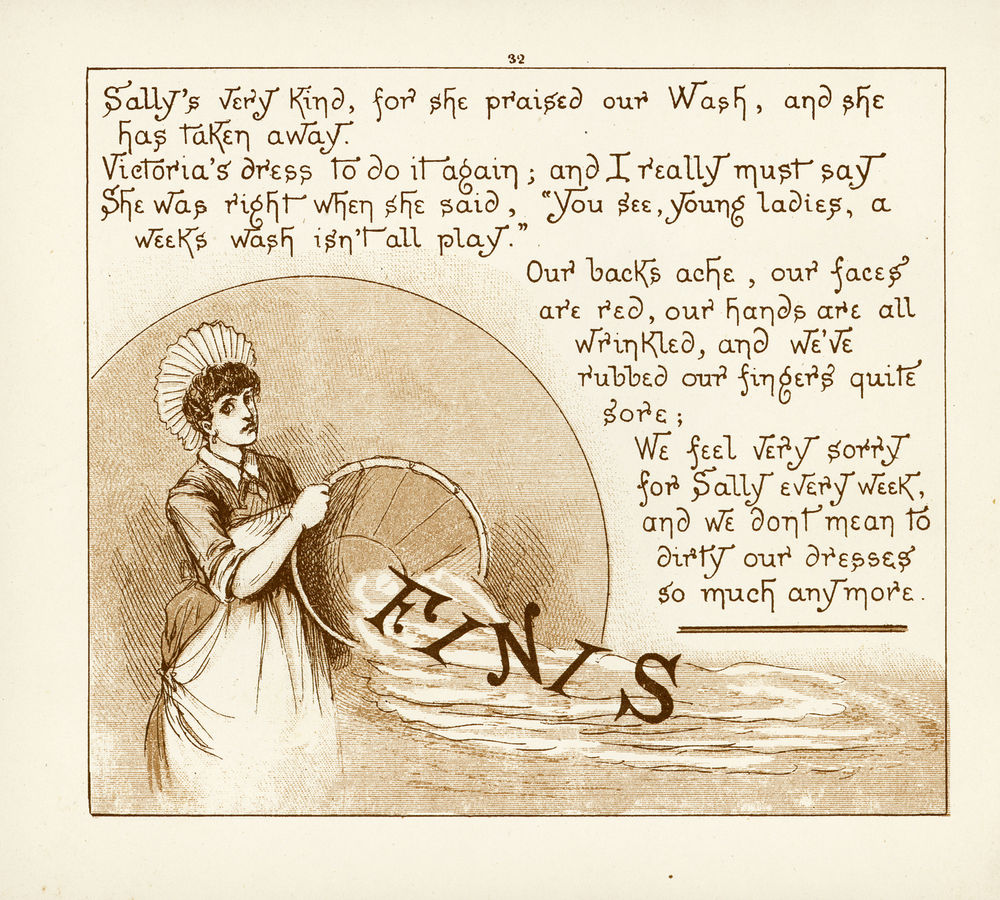 32
Sally's very kind, for she praised our Wash, and she
has taken away.
Victoria's dress to do it again; and I really must say
She was right when she said, "You see, young ladies, a
weeks wash isn't all play."
Our backs ache, our faces
are red, our hands are all
wrinkled, and we've
rubbed our fingers quite
sore;
We feel very sorry
for Sally every week,
and we dont mean to
dirty our dresses
so much anymore.
FINIS